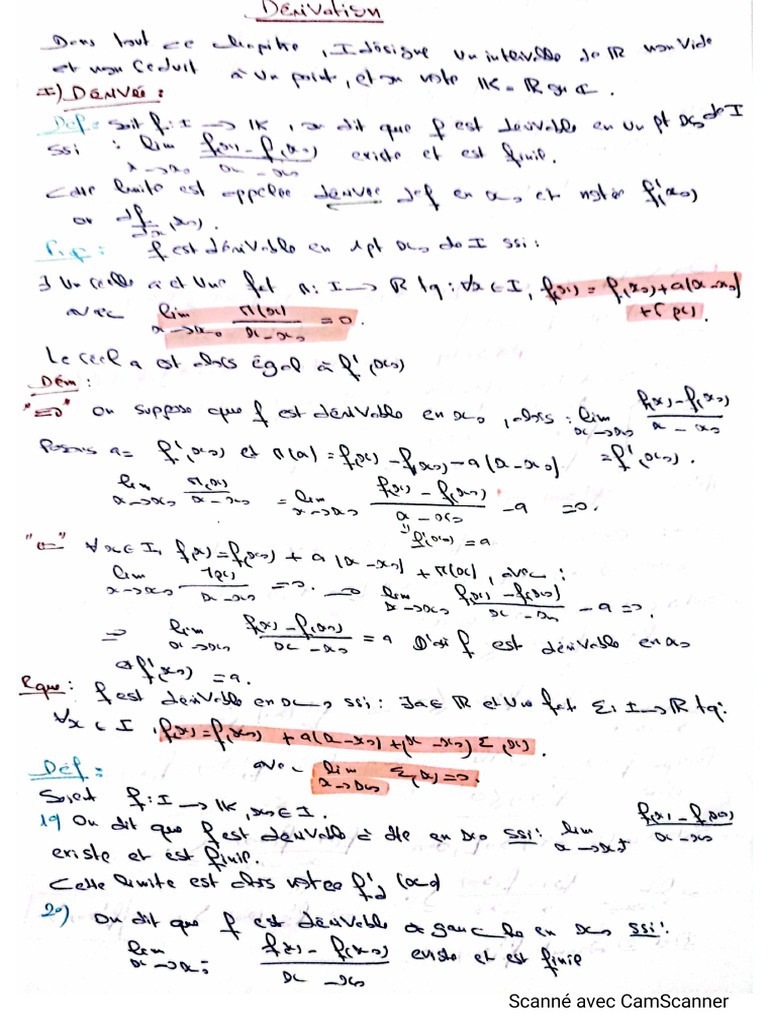 Dérivation
Dans tout ce chapitre, I désigne un intervalle de ℝ non vide
et non réduit à un point, et on note 𝕂 = ℝ ou ℂ.
I) Dérivée :
Déf : Soit f : I → 𝕂, on dit que f est dérivable en un pt x₀ de I
ssi : lim_{x→x₀} (f(x) - f(x₀))/(x - x₀) existe et est finie.
Cette limite est appelée dérivée de f en x₀ et notée f'(x₀)
ou df/dx (x₀).
f est dérivable en 1 pt x₀ de I ssi :
∃ un réel a et une fct r : I → ℝ tq : ∀x ∈ I, f(x) = f(x₀) + a(x - x₀)
+ r(x).
avec lim_{x→x₀} r(x)/(x - x₀) = 0.
Le réel a est alors égal à f'(x₀)
Dém :
"⇒" On suppose que f est dérivable en x₀, alors : lim_{x→x₀} (f(x) - f(x₀))/(x - x₀)
= f'(x₀).
Posons a = f'(x₀) et r(x) = f(x) - f(x₀) - a(x - x₀)
lim_{x→x₀} r(x)/(x - x₀) = lim_{x→x₀} (f(x) - f(x₀))/(x - x₀) - a = 0.
f'(x₀) = a
"⇐" ∀x ∈ I, f(x) = f(x₀) + a(x - x₀) + r(x), avec :
lim_{x→x₀} r(x)/(x - x₀) = 0. ⇒ lim_{x→x₀} (f(x) - f(x₀))/(x - x₀) - a = 0.
⇒ lim_{x→x₀} (f(x) - f(x₀))/(x - x₀) = a D'où f est dérivable en x₀
et f'(x₀) = a.
Rque : f est dérivable en x₀, ssi : ∃a ∈ ℝ et une fct Σ : I → ℝ tq :
∀x ∈ I, f(x) = f(x₀) + a(x - x₀) + (x - x₀) Σ(x)
avec lim_{x→x₀} Σ(x) = 0.
Déf :
Soient f : I → 𝕂, x₀ ∈ I.
1°) On dit que f est dérivable à dte en x₀ ssi : lim_{x→x₀⁺} (f(x) - f(x₀))/(x - x₀)
existe et est finie.
Cette limite est alors notée f'd(x₀)
2°) On dit que f est dérivable à gauche en x₀ ssi :
lim_{x→x₀⁻} (f(x) - f(x₀))/(x - x₀) existe et est finie
Scanné avec CamScanner